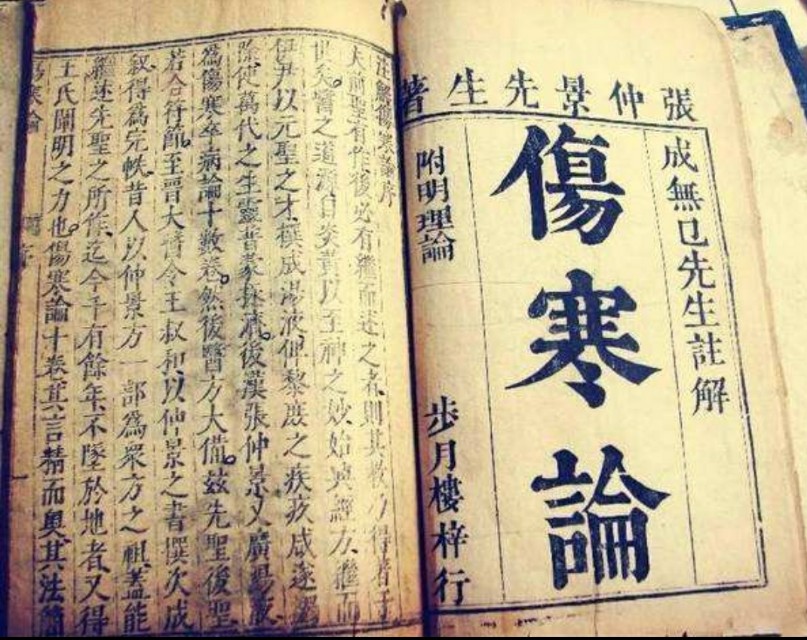 張仲景先生著
成無已先生註解
傷寒論
附明理論
步月樓梓行
註解傷寒論序
夫前聖有作後必有繼而述之者則其教乃得著于
世矣。醫之道源自炎黃以至神之妙始興經方繼而
伊尹以元聖之才撰成湯液俾黎庶之疾疚咸遂蠲
除使萬代之生靈普蒙拯濟。後漢張仲景又廣湯液
為傷寒卒病論十數卷。然後醫方大備。茲先聖後聖
若合符節。至晉大醫令王叔和以仲景之書撰次成
叙得為完帙昔人以仲景方一部為眾方之祖。蓋能
繼述先聖之所作迄今千有餘年不墜於地者又得
王氏闡明之力也。傷寒論十卷其言精而奧其法簡
傷寒論 序